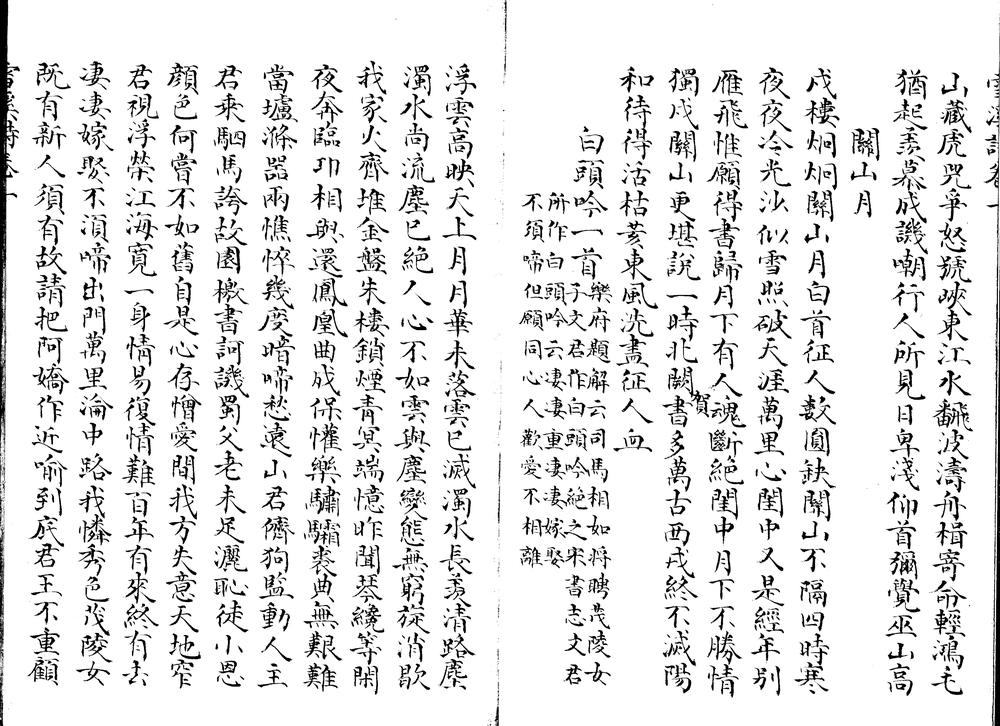 雪溪詩卷一
山藏虎兕爭怒號峽東江水飜飛波濤舟楫寄命輕鴻毛
猶起羨慕成譏嘲行人所見日卑淺仰首彌覺巫山高
關山月
戍樓炯炯關山月白首征人數圓缺關山不隔四時寒
夜夜冷光沙似雪照破天涯萬里心閨中又是經年別
雁飛惟願得書歸月下有人魂斷絕閨中月下不勝情
獨戍關山更堪說一時北闕賀書多萬古西戎終不滅陽
和待得活枯荄東風洗盡征人血
白頭吟一首
樂府題解云司馬相如將聘茂陵女
子文君作白頭吟絕之宋書志文君
所作白頭吟云淒淒重淒淒嫁娶
不須啼但願同心人歡愛不相離
浮雲高映天上月月華未落雲已滅濁水長羨清路塵
濁水尚流塵已絕人心不如雲與塵變態無窮旋消歇
我家火齊堆金盤朱樓鎖煙青冥端憶昨聞琴纔等閑
夜奔臨卭相與還鳳凰曲成保懽樂驌驦裘典無艱難
當壚滌器兩憔悴幾度暗啼愁遠山君儕狗監動人主
君乘駟馬誇故園檄書訶譏蜀父老未足灑恥徒小恩
顏色何嘗不如舊自是心存憎愛間我方失意天地窄
君視浮榮江海寬一身情易復情難百年有來終有去
淒淒嫁娶不須啼出門萬里淪中路我憐秀色茂陵女
既有新人須有故請把阿嬌作近喻到底君王不重顧
雪溪詩卷一